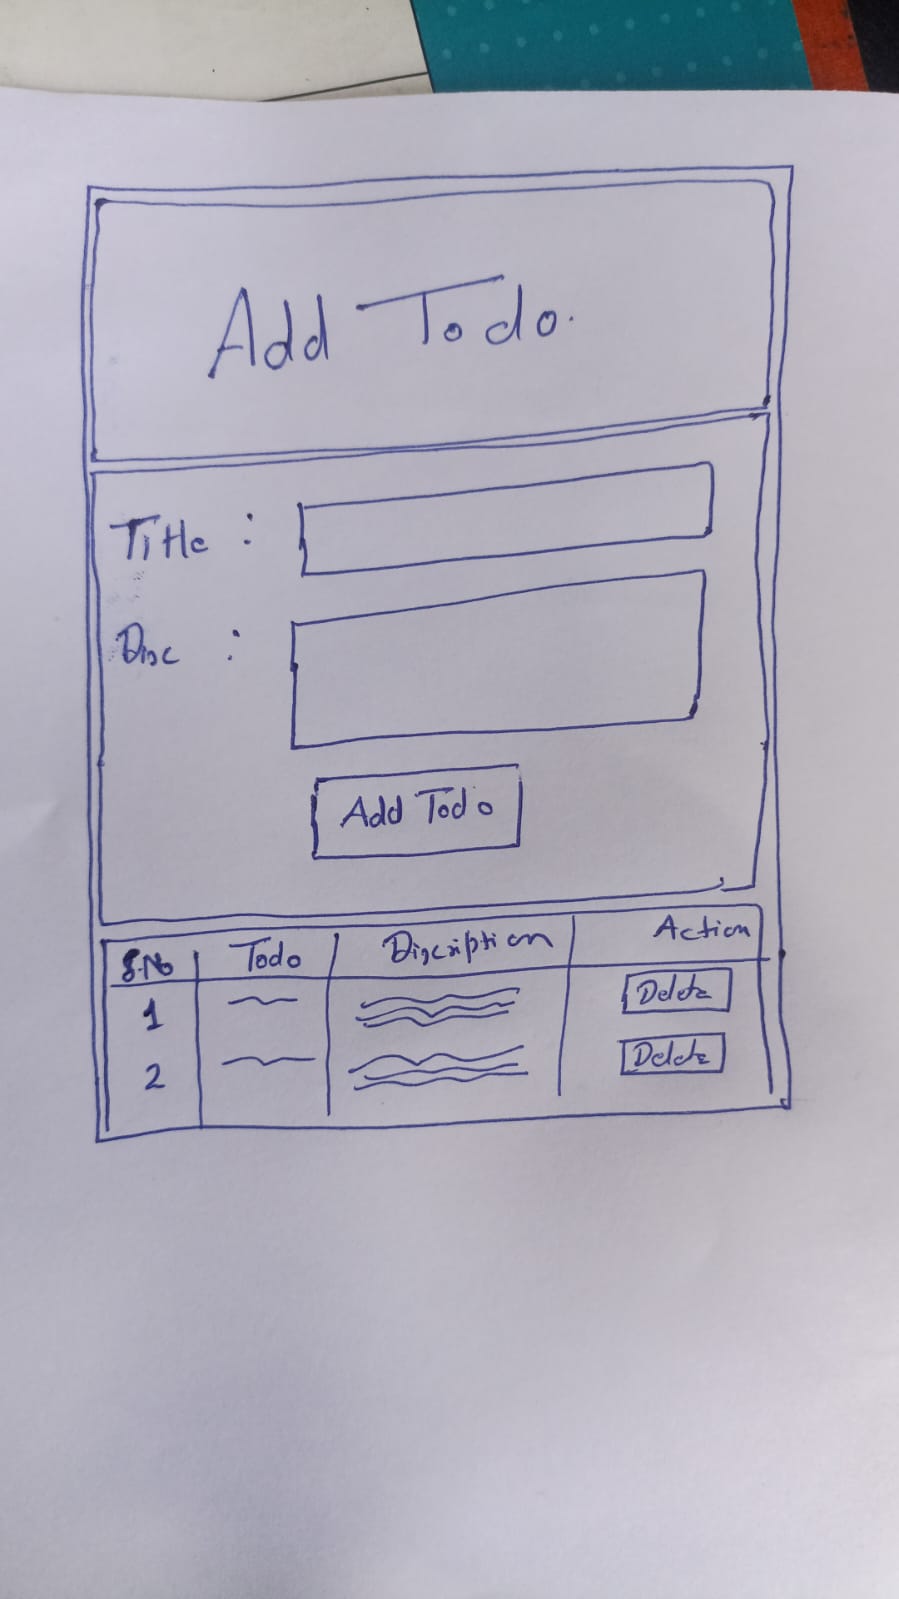 Add Todo.
Title :
Disc :
Add Todo
S.No Todo Discription Action
1 Delete
2 Delete